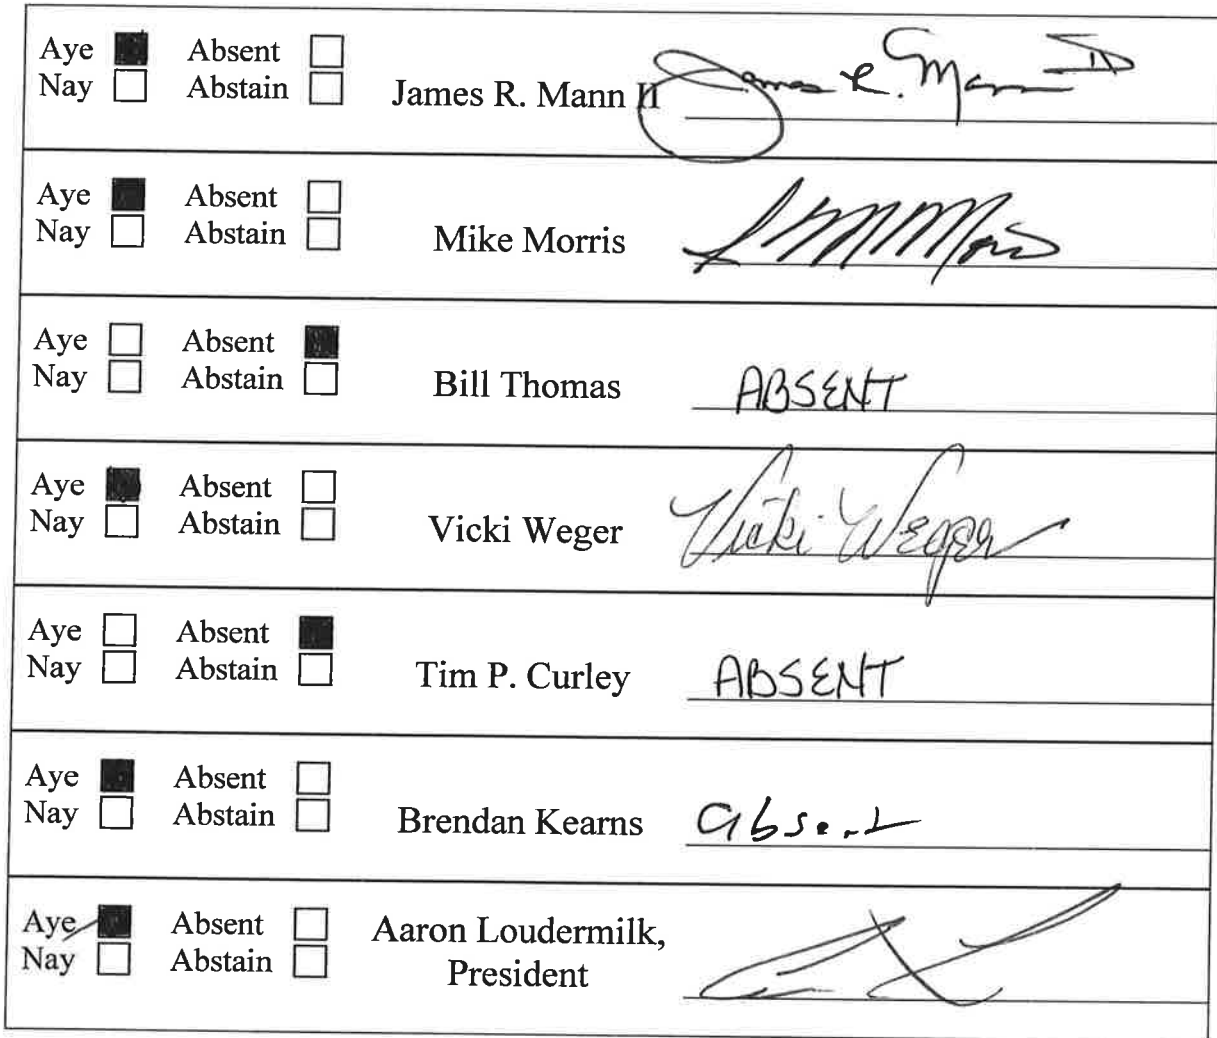 Aye ■ Absent □
Nay □ Abstain □ James R. Mann II James R. Mann II
Aye ■ Absent □
Nay □ Abstain □ Mike Morris
Aye □ Absent ■
Nay □ Abstain □ Bill Thomas ABSENT
Aye ■ Absent □
Nay □ Abstain □ Vicki Weger Vicki Weger
Aye □ Absent ■
Nay □ Abstain □ Tim P. Curley ABSENT
Aye ■ Absent □
Nay □ Abstain □ Brendan Kearns absent
Aye ■ Absent □ Aaron Loudermilk,
Nay □ Abstain □ President